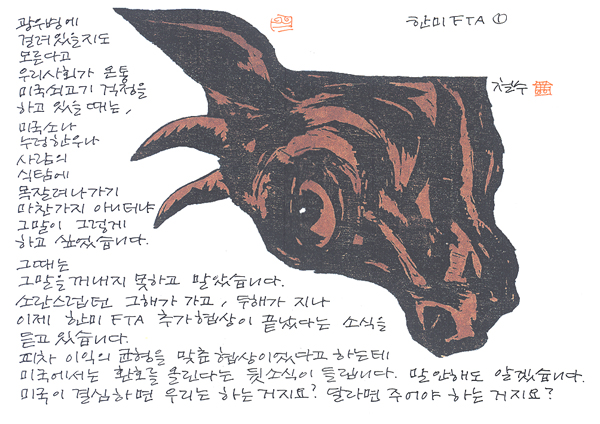 한미 FTA ①
철수
광우병에
걸려있을지도
모른다고
우리사회가 온통
미국쇠고기 걱정을
하고 있을 때는,
미국소나
누렁한우나
사람의
식탐에
목잘려나가기
마찬가지 아니더냐
그말이 그렇게
하고 싶었습니다.
그때는
그말을 꺼내지 못하고 말았습니다.
소란스럽던 그해가 가고, 두해가 지나
이제 한미 FTA 추가협상이 끝났다는 소식을
듣고 있습니다.
피차 이익의 균형을 맞춘 협상이었다고 하는데
미국에서는 환호를 올린다는 뒷소식이 들립니다. 말 안해도 알겠습니다.
미국이 결심하면 우리는 하는거지요? 달라면 주어야 하는거지요?